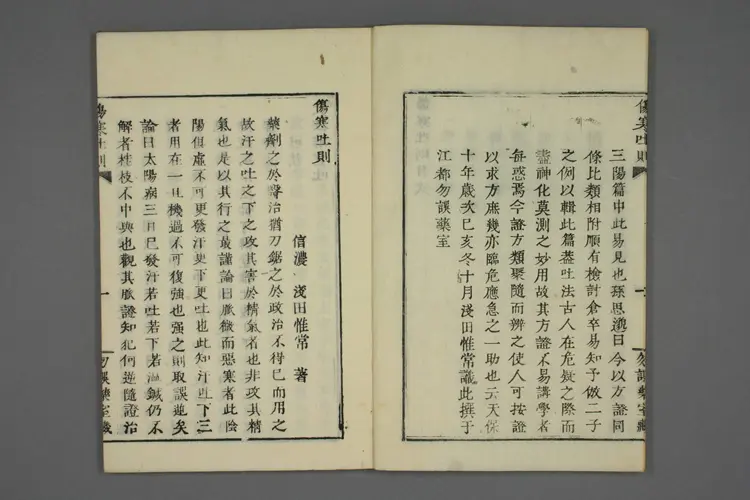 傷寒吐則
三陽篇中此易見也孫思邈曰今以方證同
條比類相附順有檢討倉卒易知予做二子
之例以輯此篇蓋吐法古人在危疑之際而
盡神化莫測之妙用故其方證不易講學者
每惑焉今證方類聚隨而辨之使人可按證
以求方庶幾亦臨危應急之一助也云天保
十年歲次己亥冬十月淺田惟常識此撰于
江都勿誤藥室
一
勿誤藥室藏
傷寒吐則
信濃 淺田惟常 著
藥劑之於醫治猶刀鋸之於政治不得已而用之
故汗之吐之下之攻其害於精氣者也非攻其精
氣也是以其行之最謹論曰脈微而惡寒者此陰
陽俱虛不可更發汗更下更吐也此知汗吐下三
者用在一旦機過不可復強也强之則取誤逆矣
論曰太陽病三日已發汗若吐若下若溫鍼仍不
解者桂枝不中與也觀其脈證知犯何逆隨證治
傷寒吐則
一
勿誤藥室藏